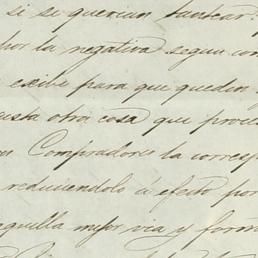 si se querian tantear:
por la negativa segun con
exibe para que queden
usta otra cosa que proce
Compradores la corresp
reduciendolo á efecto por
quilla mejor via y form